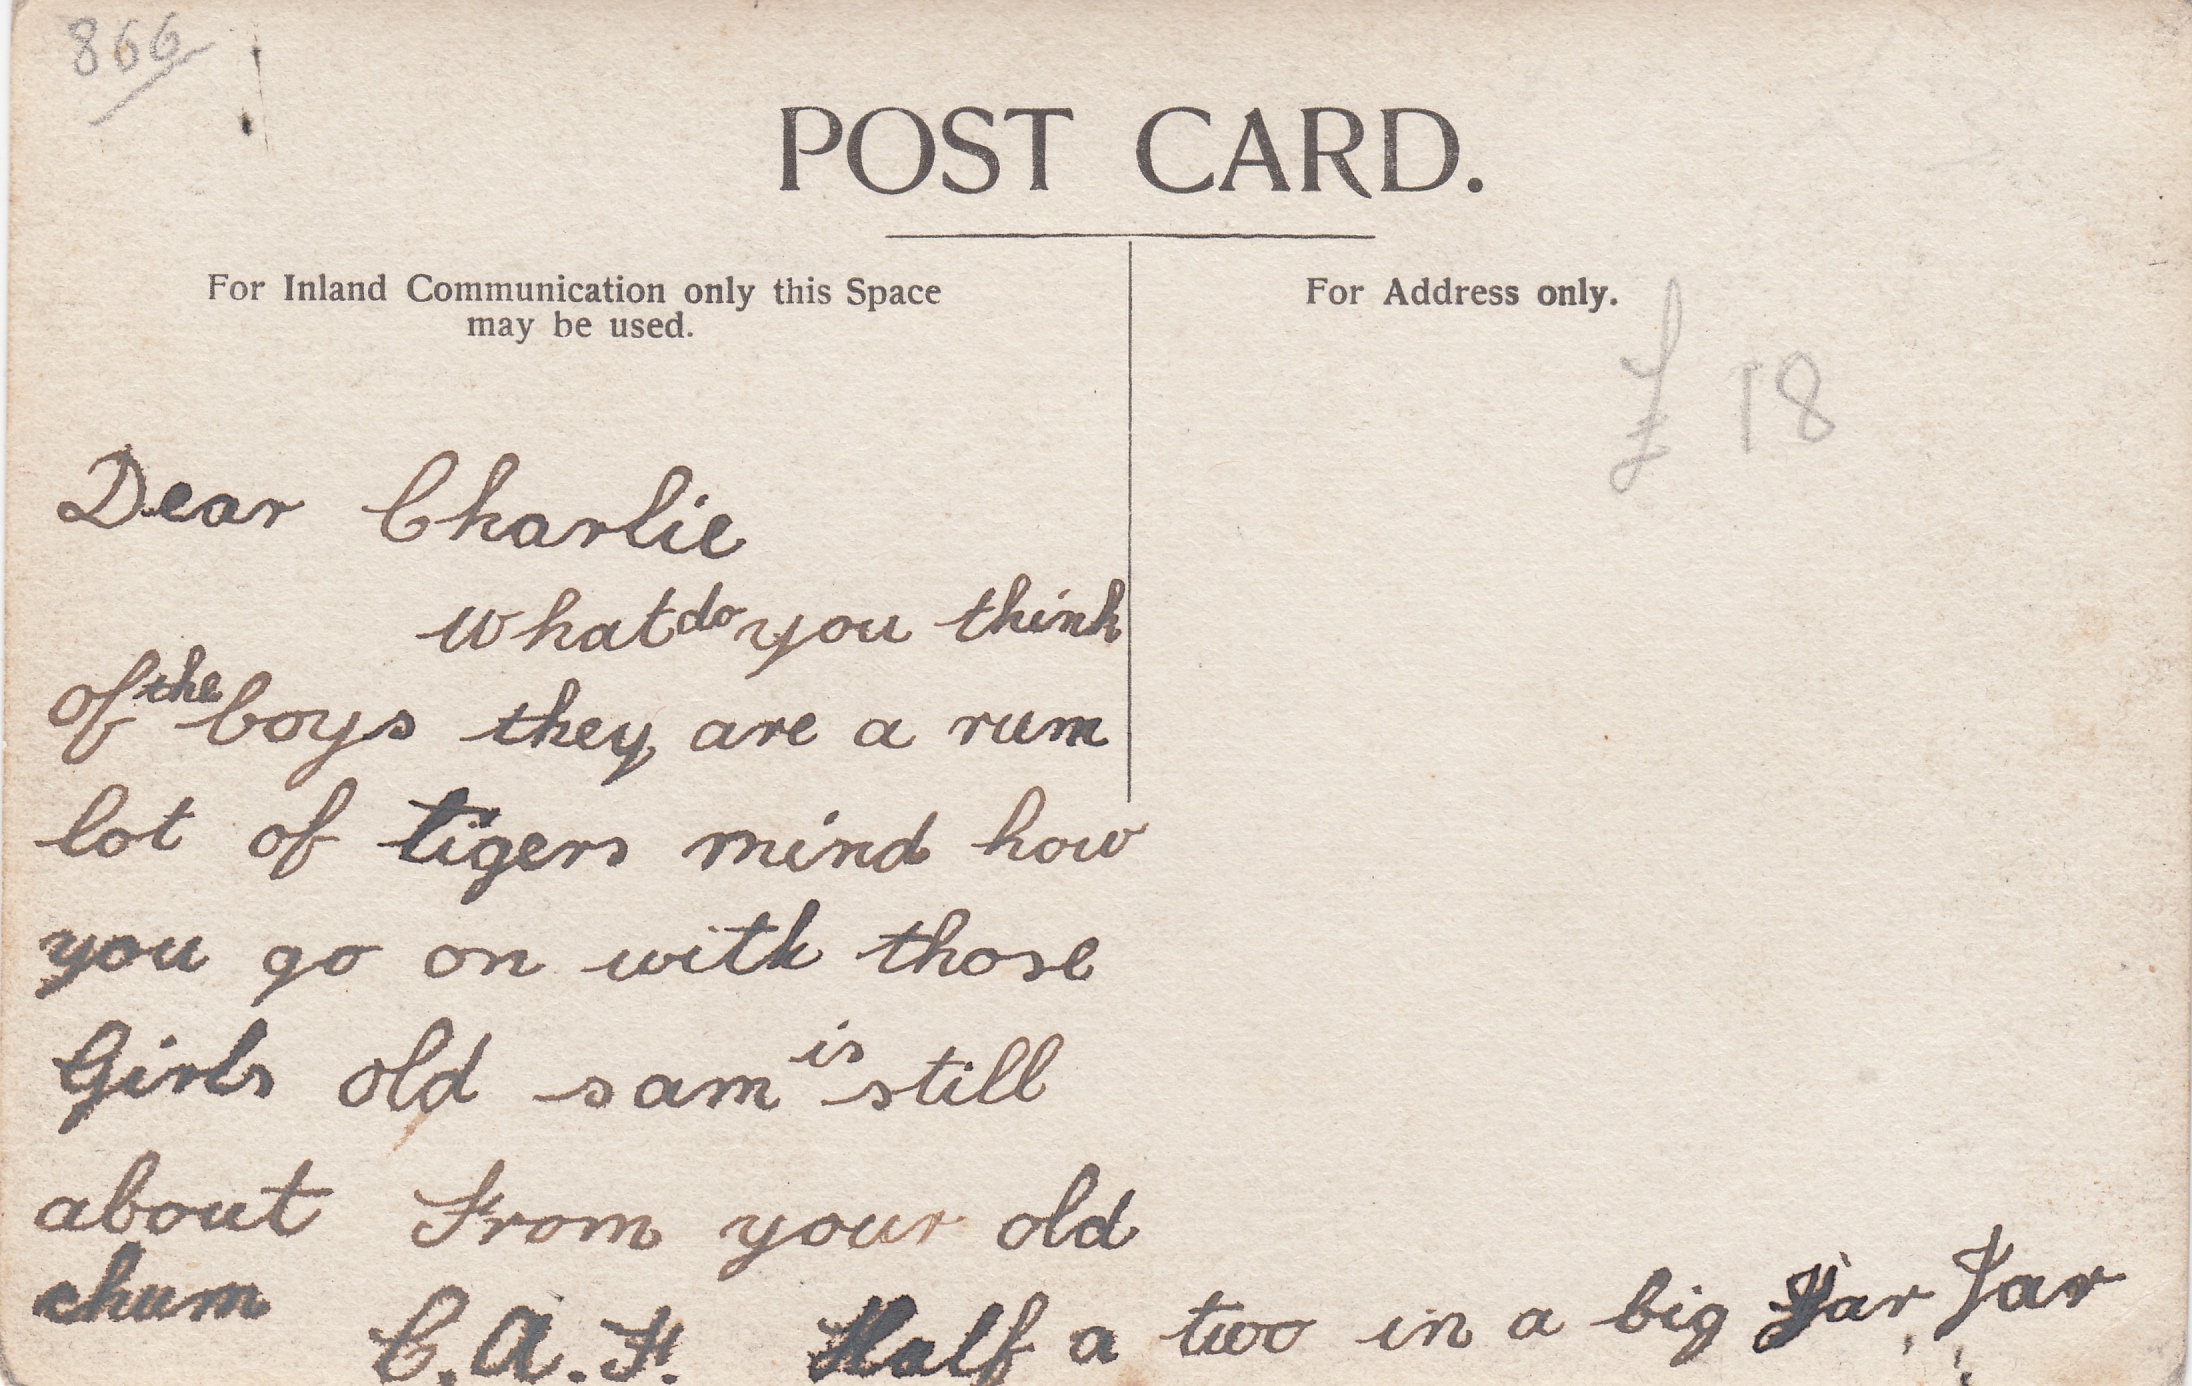 866
POST CARD.
For Inland Communication only this Space
may be used.
For Address only.
£ 18
Dear Charlie
What do you think
of the boys they are a rum
lot of tigers mind how
you go on with those
Girls old sam is still
about From your old
chum
C. A. F. Half a two in a big Jar Jar